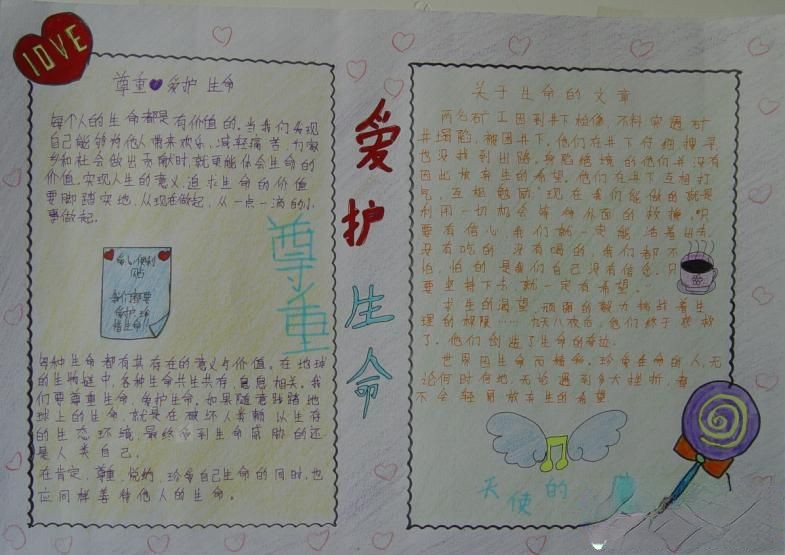 LOVE
尊重 爱护 生命
每个人的生命都是有价值的。当我们发现
自己能够为他人带来欢乐,减轻痛苦,为家
乡和社会做出贡献时,就更能体会生命的
价值,实现人生的意义,追求生命的价值
要脚踏实地,从现在做起,从一点一滴的小
事做起。
爱心便利
贴
我们都要
爱护,珍
惜生命!!
每种生命都有其存在的意义与价值。在地球
的生物链中,各种生命共生共存,息息相关。我
们要尊重生命,爱护生命。如果随意践踏地
球上的生命,就是在破坏人类赖以生存
的生态环境,最终受到生命威胁的还
是人类自己。
在肯定、尊重、悦纳、珍爱自己生命的同时,也
应同样善待他人的生命。
尊重
爱护生命
关于生命的文章
两名矿工因到井下检修,不料突遇矿
井塌陷,被困井下。他们在井下仔细搜寻,
也没找到出路。身陷绝境的他们并没有
因此放弃生的希望。他们在井下互相打
气,互相勉励:现在我们能做的就是
利用一切机会等待外面的救援。只
要有信心,我们就一定能活着出去。
没有吃的 没有喝的,我们都不
怕,怕的是我们自己没有信念,只
要坚持下去,就一定有希望。"
求生的渴望,顽强的毅力挑战着生
理的极限……九天八夜后,他们终于获救
了。他们创造了生命的奇迹。
世界因生命而精彩。珍爱生命的人,无
论何时何地,无论遇到多大挫折,都
不会轻易放弃生的希望
天使的